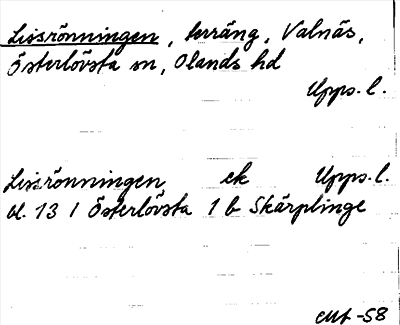 Lissrönningen, terräng, Valnäs,
Österlövsta sn, Olands hd
Upps. l.
Lissrönningen, ek Upps. l.
bl. 13 I Österlövsta 1 b Skärplinge
-58